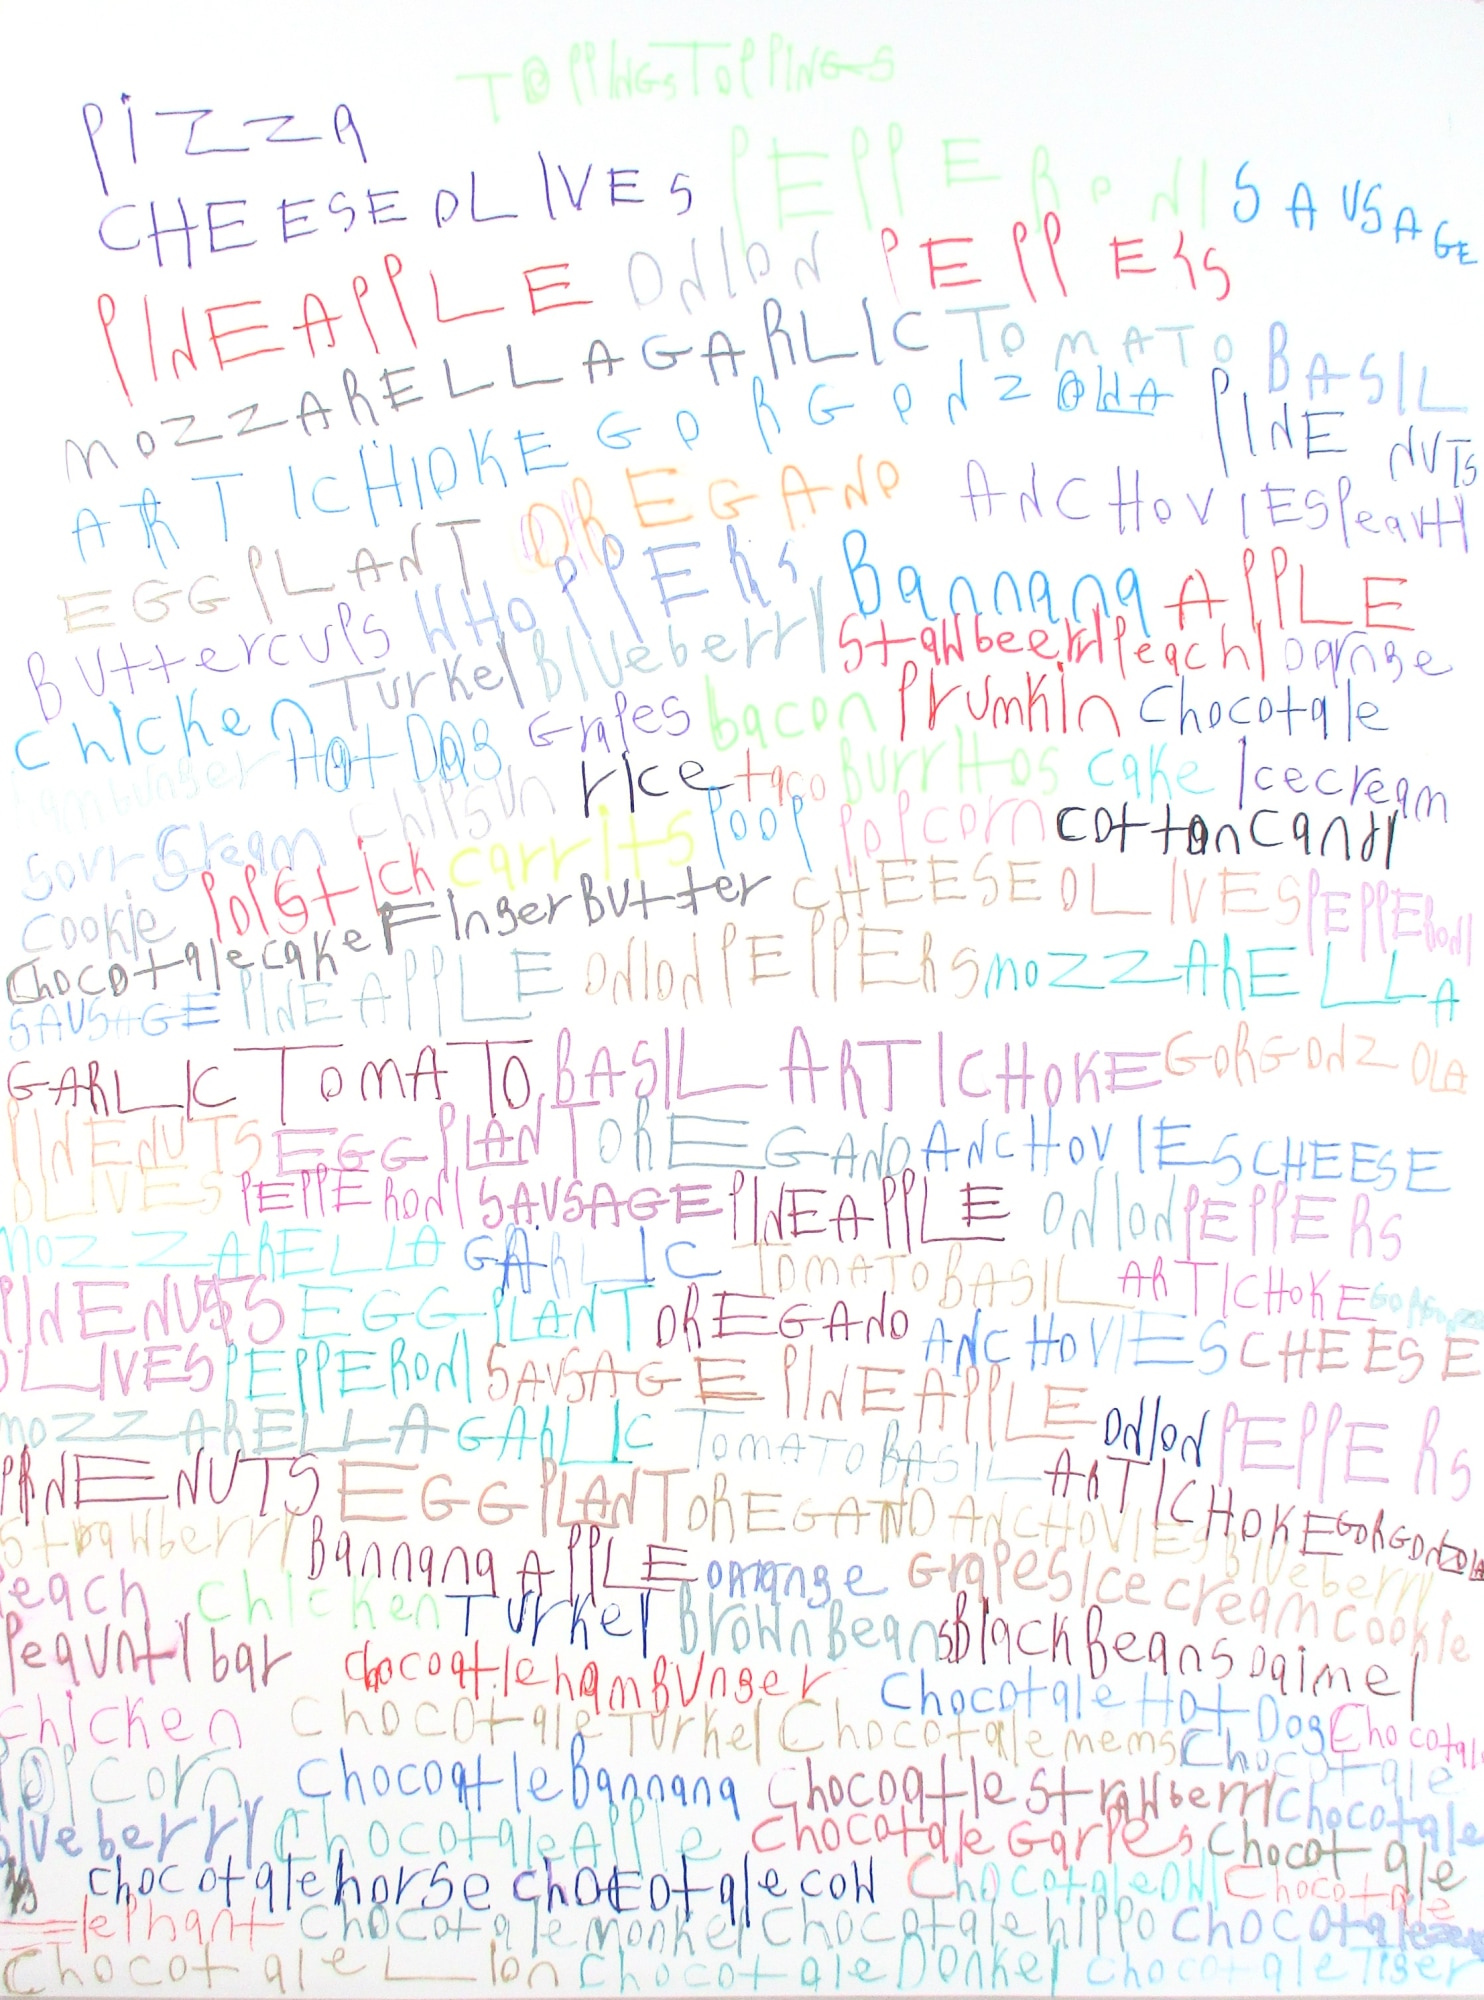 TOPPINGSTOPPINGS
PiZZa
CHEESEOLIVES PEPPERONI SAUSAGE
PINEAPPLE ONION PEPPERS
MOZZARELLA GARLIC TOMATO BASIL
ARTICHIOKE GORGONZOLLA PINE NUTS
EGGPLANT OREGANO ANCHOVIES Peauty
Buttercups WHOPPERS Bannana APPLE
chicken Turkey Blueberry Stawbeerry Peachy oarnge
hambunger Hot Dog Grapes bacon Prumkin Chocotale
Sour Gream chipsun rice taco Burritos cake Icecream
cookie popstick carrits poop popcorn cottoncandy
Chocotalecake FingerButter CHEESEOLIVES PEPPERONI
SAUSAGE PINEAPPLE ONION PEPPERS MOZZARELLA
GARLIC TOMATO BASIL ARTICHOKE GORGONZOLA
PINENUTS EGGPLANT OREGANO ANCHOVIES CHEESE
OLIVES PEPPERONI SAUSAGE PINEAPPLE ONION PEPPERS
MOZZARELLA GARLIC TOMATO BASIL ARTICHOKE GORGONZOLA
PINENUSS EGGPLANT OREGANO ANCHOVIES CHEESE
OLIVES PEPPERONI SAUSAGE PINEAPPLE ONION PEPPERS
MOZZARELLA GARLIC TOMATO BASIL ARTICHOKE GORGONZOLA
PINENUTS EGGPLANT OREGANO ANCHOVIES
Strawberry Bannana APPLE orange Grapes Blueberry
Peach chicken Turkey BrownBeans Icecream Cookie
Peauntybar chocoatlehambunger BlackBeans oaimel
chicken ChocotaleTurkey Chocotalemems Chocotale Hot Dog Chocotale
POPCorn ChocoatleBannana ChocoatleStrawberry Chocotale
blueberry ChocotaleApple Chocotale Garpes Chocotale
chocotalehorse chocotalecow Chocotaleowl Chocotale
Elephant Chocotalemonkey Chocotalehippo Chocotale
ChocotaleLion ChocotaleDonkey ChocotaleTiger